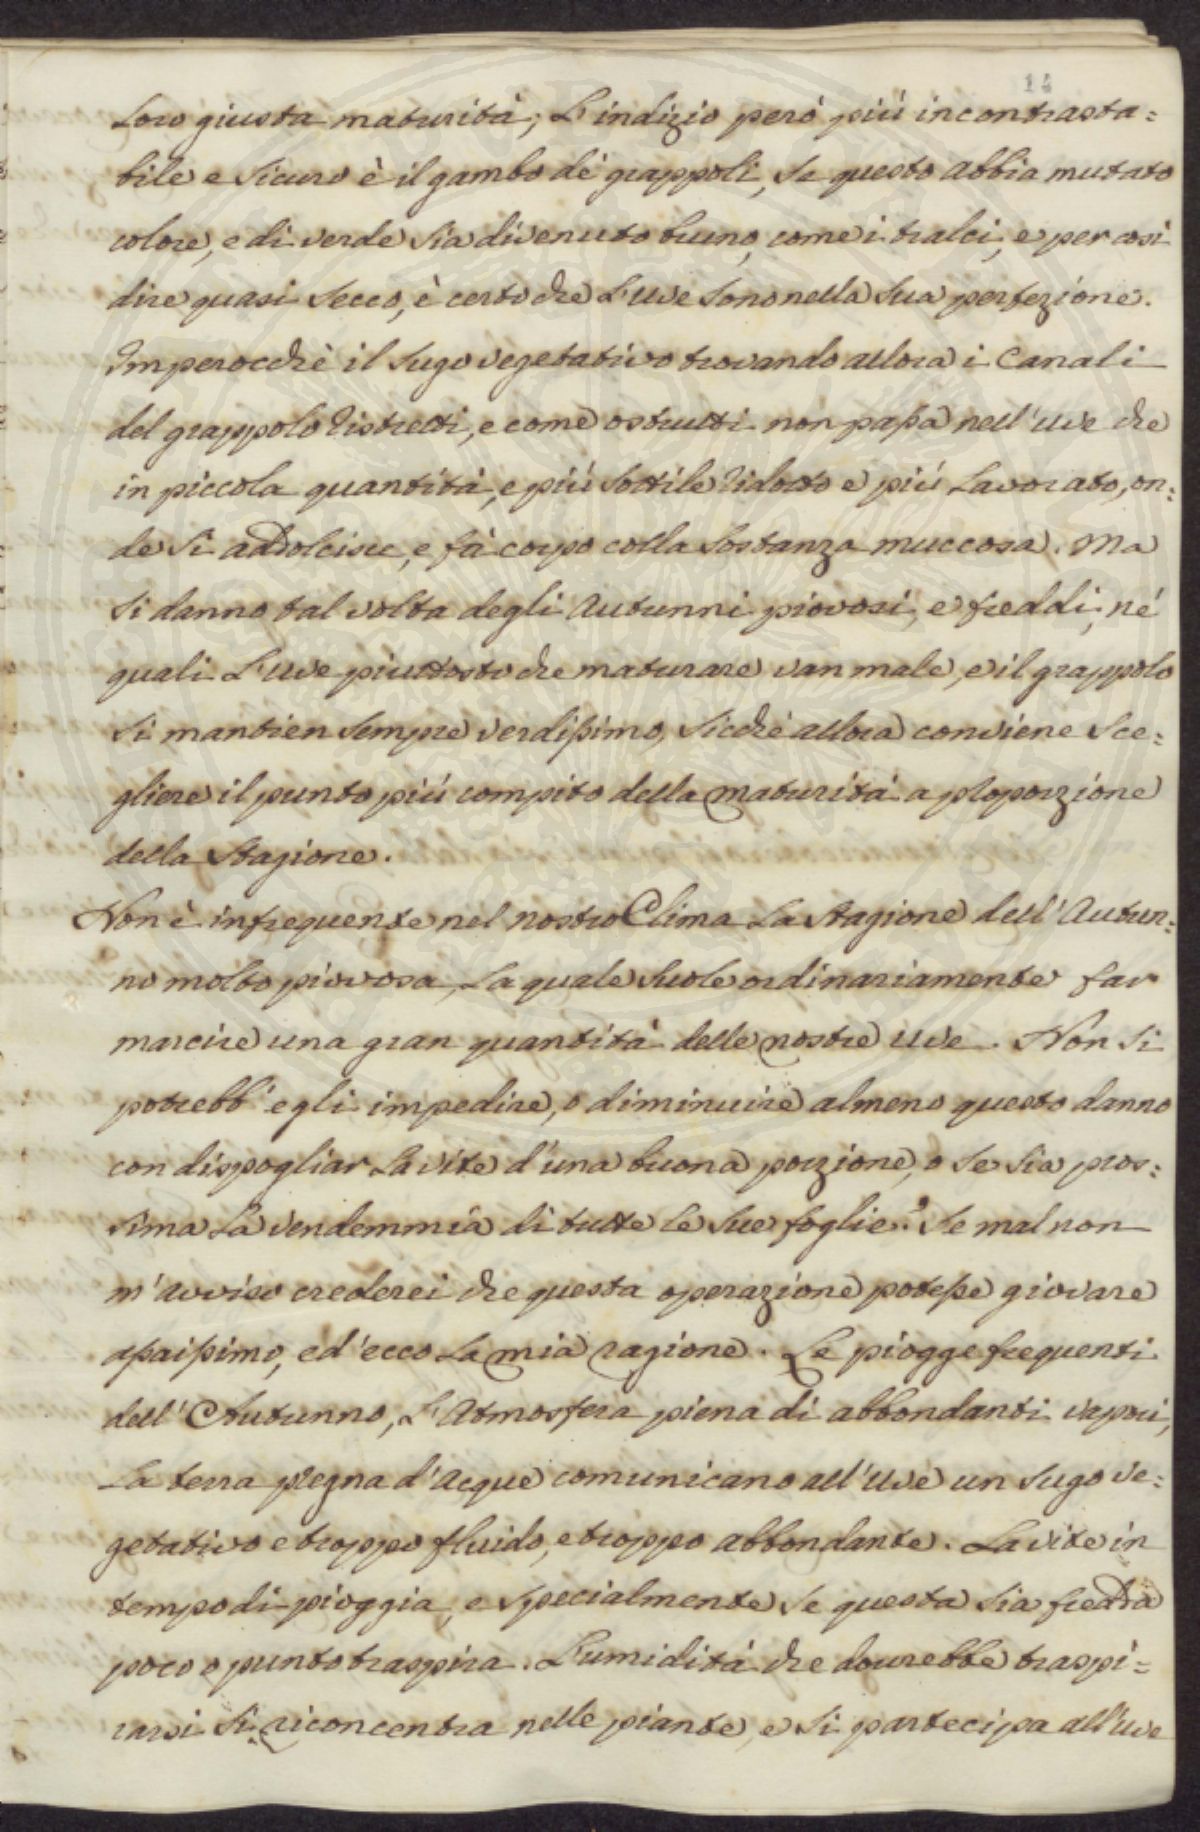 Loro giusta maturità; L'indizio però più incontrasta=
bile e Sicuro è il gambo de' grappoli, Se questo abbia mutato
colore, e di verde Sia divenuto bruno, come i tralci, e per così
dire quasi Secco, è certo che L'Uve Sono nella Sua perfezione.
Imperocchè il Sugo vegetativo trovando allora i Canali
del grappolo ristretti, e come ostrutti non passa nell'uve che
in piccola quantità, e più Sottile ridotto e più Lavorato, on=
de Si addolcisce, e fà corpo colla Sostanza muccosa. Ma
Si danno tal volta degli Autunni piovosi, e freddi, né
quali L'Uve piuttosto che maturare van male, e il grappolo
Si mantien Sempre verdissimo, Sicchè allora conviene Sce=
gliere il punto più compito della maturità a proporzione
della Stagione.
Non è infrequente nel nostro Clima La Stagione dell'Autun=
no molto piovosa, La quale Suole ordinariamente far
marcire una gran quantità delle nostre Uve. Non Si
potrebb'egli impedire, o diminuire almeno questo danno
con dispogliar La vite d'una buona porzione, o Se Sia pros=
Sima La vendemmia di tutte Le Sue foglie? Se mal non
m'avviso crederei che questa operazione potesse giovare
assaissimo, ed'ecco La mia ragione. Le piogge frequenti
dell'Autunno, L'Atmosfera piena di abbondanti vapori,
La terra pregna d'Acque comunicano all'Uve un Sugo ve=
getativo e troppo fluido, e troppo abbondante. La vite in
tempo di pioggia, e Specialmente Se questa Sia fredda
poco o punto traspira. L'umidità che dourebbe traspi=
rarsi Si riconcentra nelle piante, e Si partecipa all'Uve